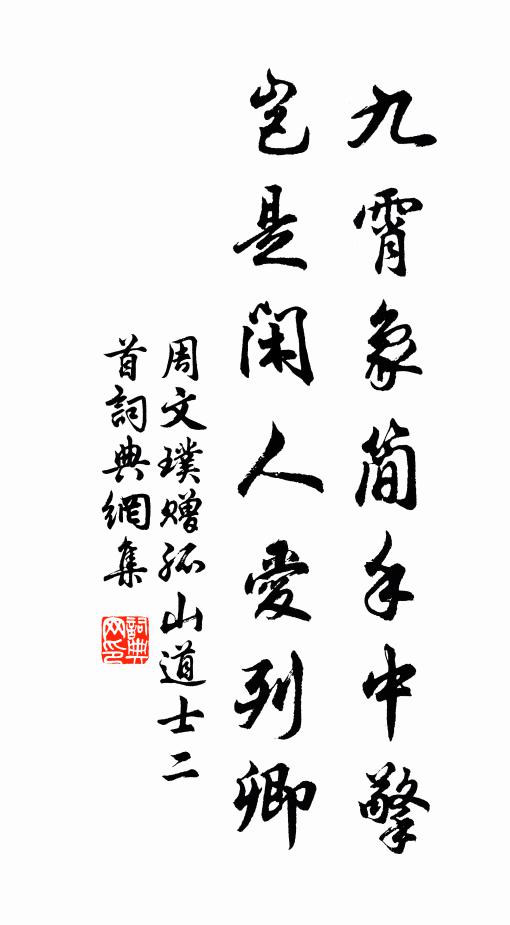 九霄象简手中擎
岂是闲人爱列卿
周文璞赠孤山道士二
首词典网集
詞典
网印